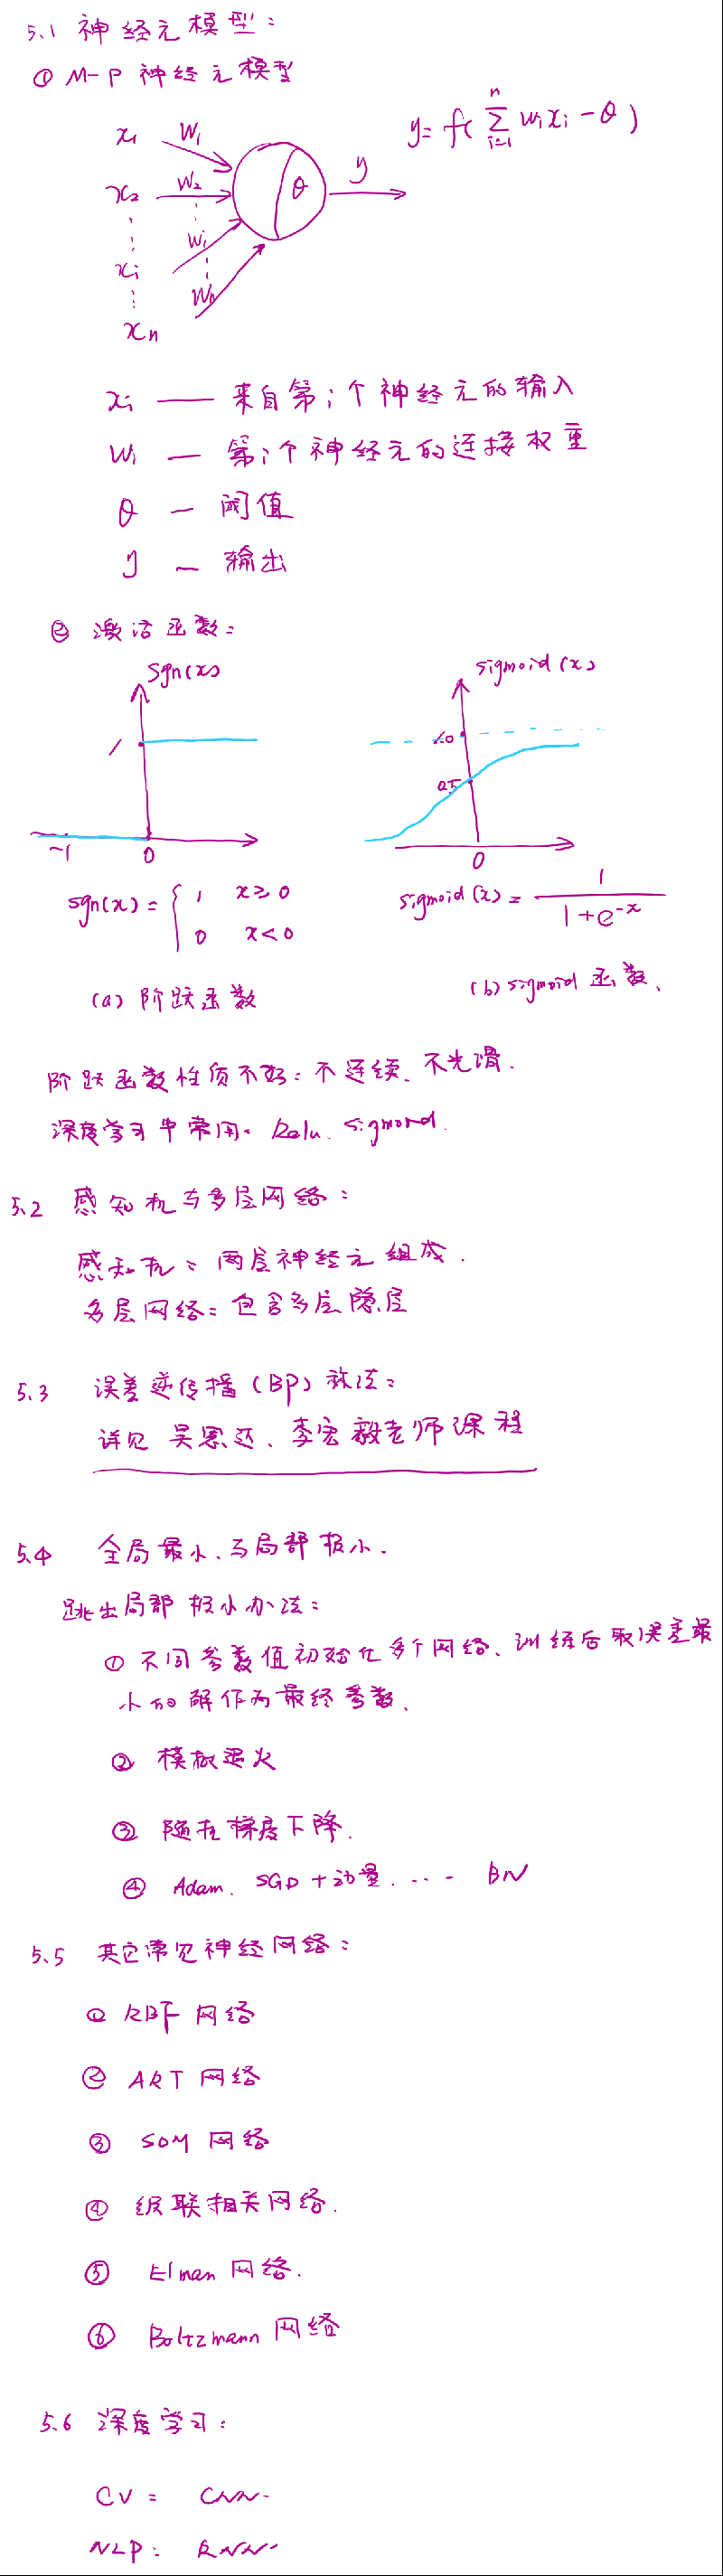 5.1 神经元模型：
① M-P 神经元模型
y = f( \sum_{i=1}^{n} wixi - θ )
x1 w1
x2 w2 θ y
xi wi
xn wn
xi —— 来自第i个神经元的输入
wi — 第i个神经元的连接权重
θ — 阈值
y — 输出
② 激活函数：
sgn(x) sigmoid(x)
1 1.0
0.5
-1 0 0
sgn(x) = { 1 x≥0
0 x<0
sigmoid(x) = 1 / (1+e^{-x})
(a) 阶跃函数 (b) sigmoid 函数、
阶跃函数性质不好：不连续、不光滑.
深度学习中常用. Relu、sigmoid.
5.2 感知机与多层网络：
感知机：两层神经元组成.
多层网络：包含多层隐层
5.3 误差逆传播（BP）算法：
详见 吴恩达、李宏毅老师课程
5.4 全局最小与局部极小.
跳出局部极小办法：
① 不同参数值初始化多个网络、训练后取误差最
小的解作为最终参数.
② 模拟退火
③ 随机梯度下降.
④ Adam、SGD+动量、... - BN
5.5 其它常见神经网络：
① RBF 网络
② ART 网络
③ SOM 网络
④ 级联相关网络.
⑤ Elman 网络.
⑥ Boltzmann 网络
5.6 深度学习：
CV： CNN.
NLP： RNN.